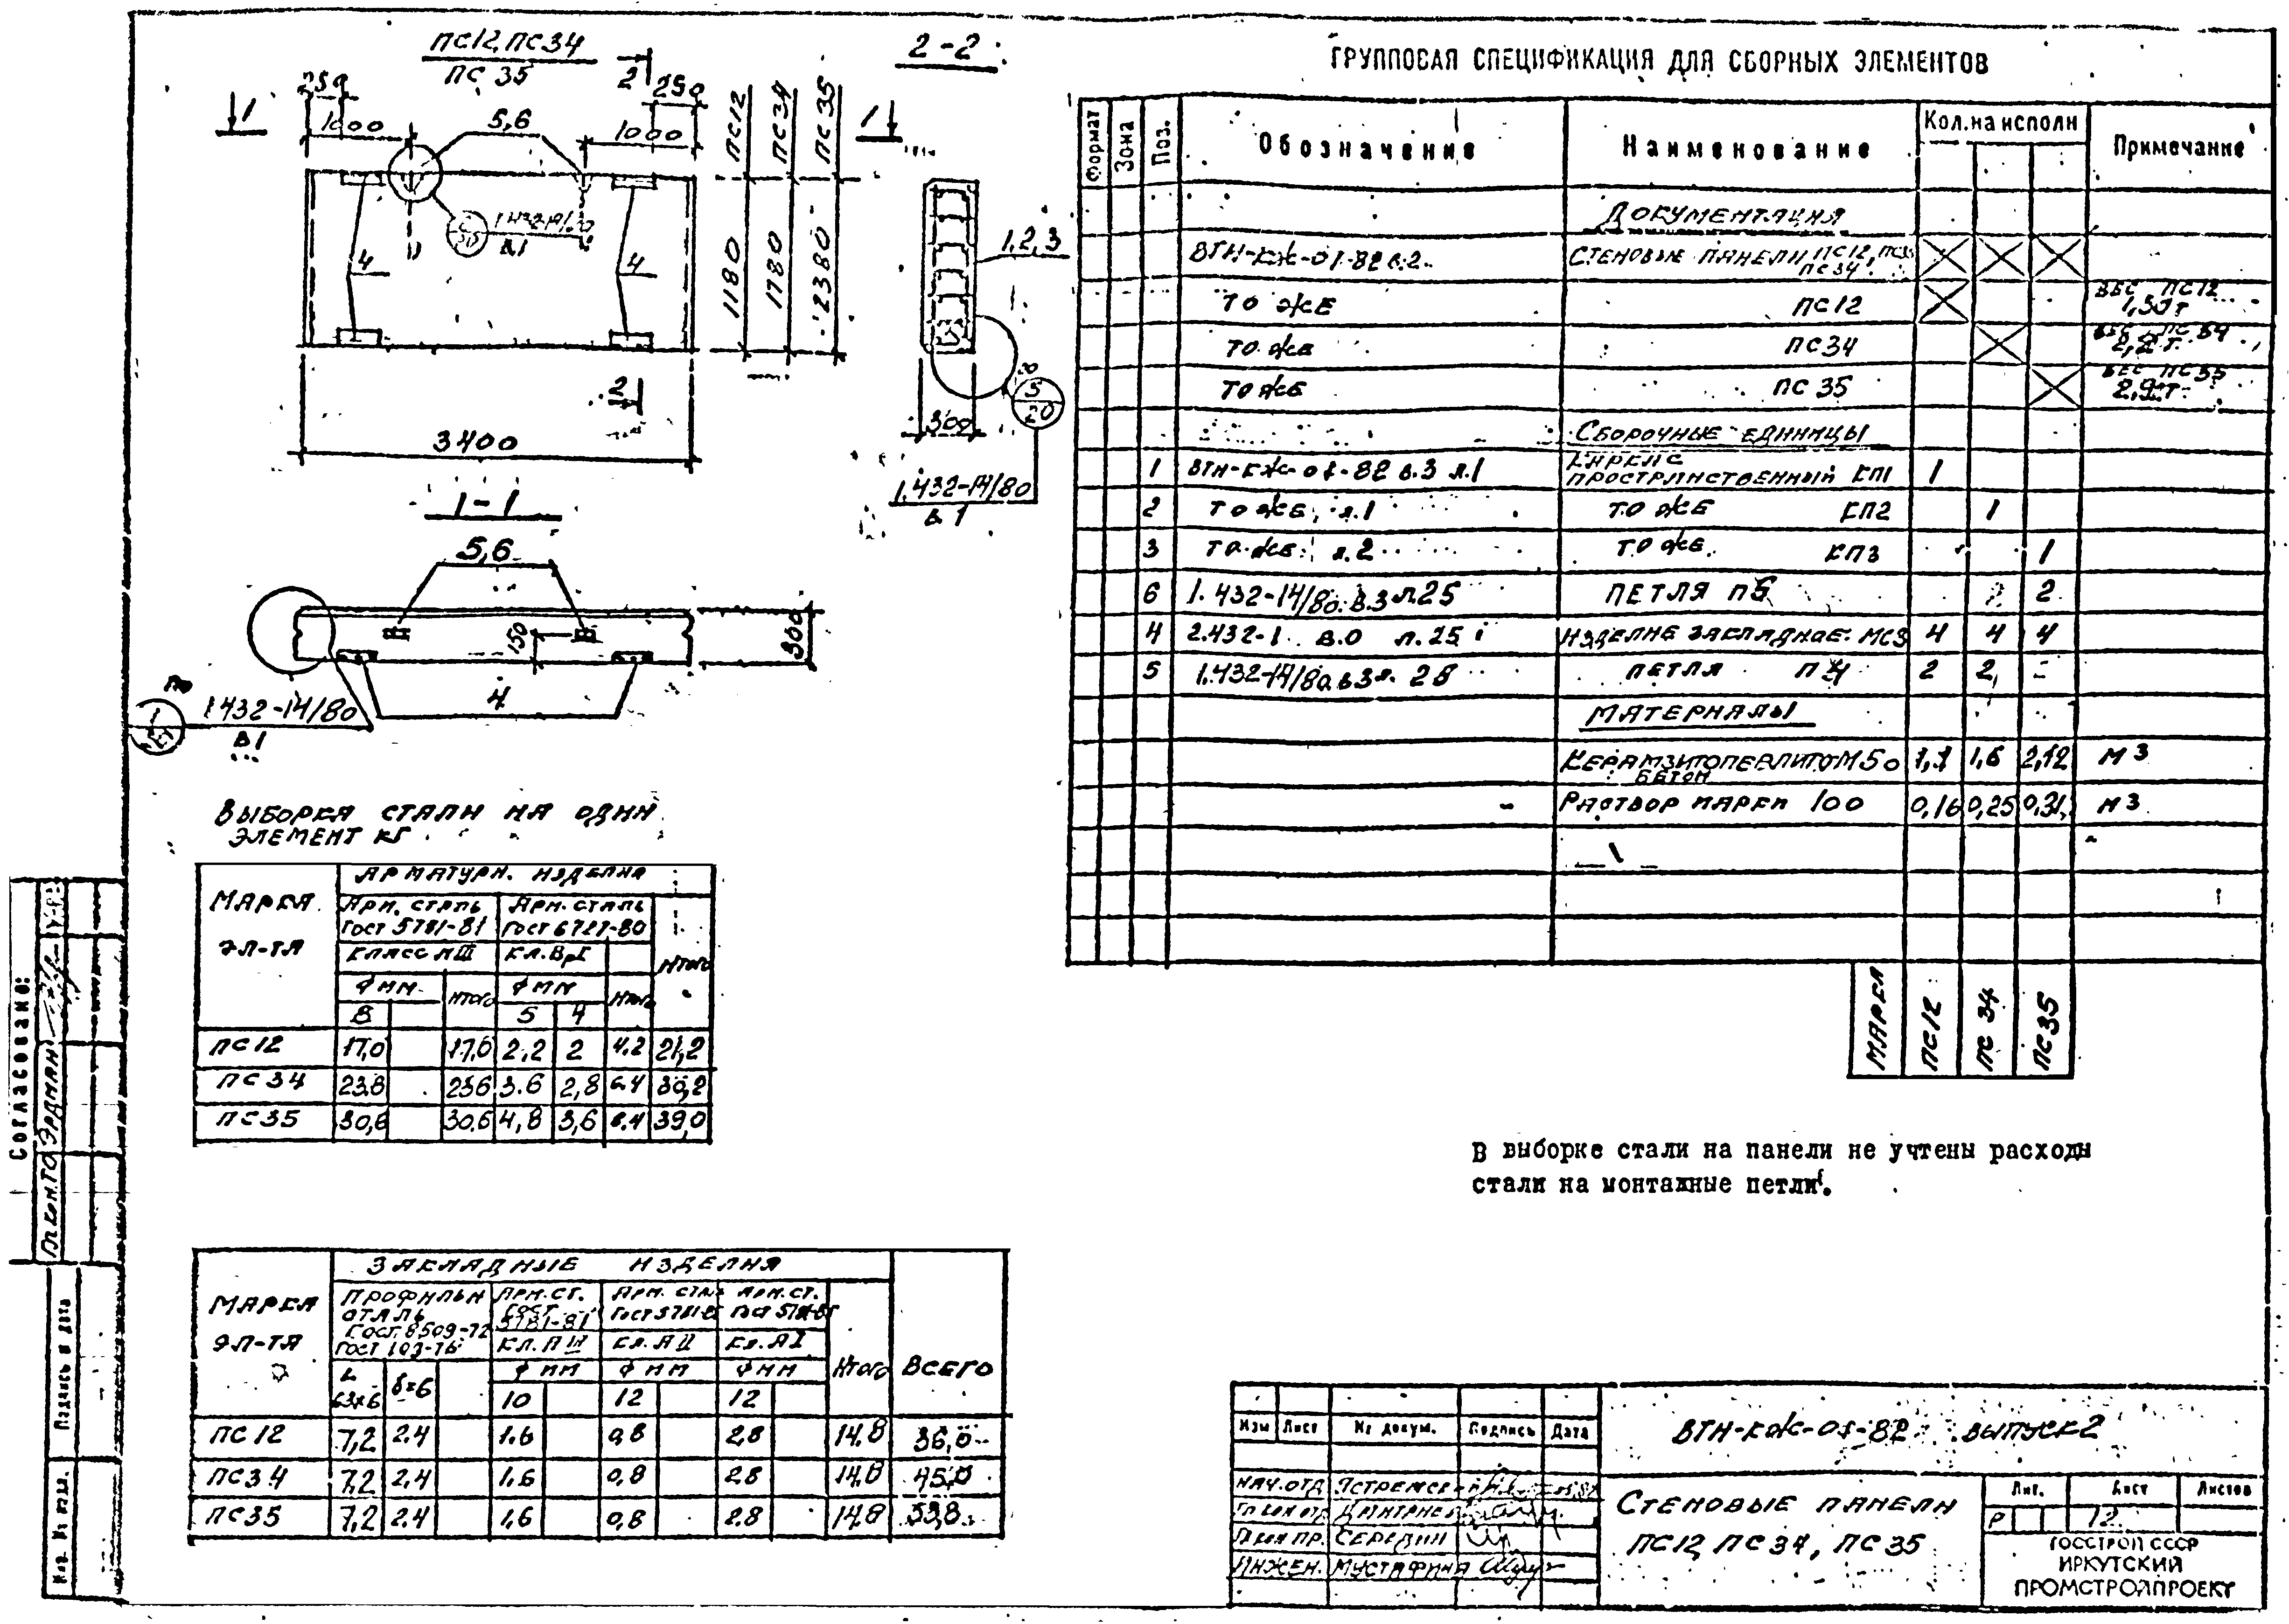 ПС12, ПС34
ПС 35
2
2-2
250
250
1
1000
5,6
1000
ПС12
ПС34
ПС35
1
4
4
1180
1780
2380
1,2,3
2
3400
300
5
20
1.432-14/80
в.1
1-1
5,6
150
300
4
1.432-14/80
в1
ВЫБОРКА СТАЛИ НА ОДИН
ЭЛЕМЕНТ КГ
МАРКА
ЭЛ-ТА
АРМАТУРН. ИЗДЕЛИЯ
АРМ. СТАЛЬ АРМ. СТАЛЬ
ГОСТ 5781-81 ГОСТ 6727-80
ИТОГО
КЛАСС АIII КЛ. ВрI
Ф ММ ИТОГО Ф ММ ИТОГО
8 5 4
ПС12 17,0 17,0 2,2 2 4,2 21,2
ПС34 23,8 23,6 3.6 2,8 6.4 30,2
ПС35 30,6 30,6 4,8 3,6 8.4 39,0
ЗАКЛАДНЫЕ ИЗДЕЛИЯ
МАРКА
ЭЛ-ТА
ПРОФИЛЬН
СТАЛЬ
ГОСТ 8509-72
ГОСТ 103-76
АРМ. СТ.
ГОСТ
5781-81
АРМ. СТАЛ
ГОСТ 5781-81
АРМ. СТ.
ГОСТ 5781-81
КЛ. А III КЛ. А II КЛ. А I
ИТОГО ВСЕГО
Ф ММ Ф ММ Ф ММ
L
63х6 δ=6 10 12 12
ПС12 7,2 2.4 1.6 0,8 2,8 14.8 36,0
ПС34 7,2 2,4 1,6 0,8 2.8 14,8 45,0
ПС35 7,2 2.4 1,6 0,8 2.8 14,8 53,8
ГРУППОВАЯ СПЕЦИФИКАЦИЯ ДЛЯ СБОРНЫХ ЭЛЕМЕНТОВ
Формат Зона Поз. Обозначение Наименование Кол. на исполн Примечание
ДОКУМЕНТАЦИЯ
ВТН-КЖ-01-82 в.2 СТЕНОВЫЕ ПАНЕЛИ ПС12, ПС35
ПС34
ТО ЖЕ ПС12 ВЕС ПС12
ТО ЖЕ ПС34 ВЕС ПС 34
2,2 т.
ТО ЖЕ ПС 35 ВЕС ПС35
2,9 т.
СБОРОЧНЫЕ ЕДИНИЦЫ
1 ВТН-КЖ-01-82 в.3 л.1 КАРКАС
ПРОСТРАНСТВЕННЫЙ КП1 1
2 ТО ЖЕ, л.1 ТО ЖЕ КП2 1
3 ТО ЖЕ л.2 ТО ЖЕ КП3 1
6 1.432-14/80.в.3 л.25 ПЕТЛЯ П6 2
4 2.432-1 в.0 л.25 ИЗДЕЛИЕ ЗАКЛАДНОЕ МС3 4 4 4
5 1.432-14/80.в3 л. 25 ПЕТЛЯ П4 2 2 -
МАТЕРИАЛЫ
КЕРАМЗИТОПЕРЛИТО М50
БЕТОН 1,1 1,6 2,12 М3
РАСТВОР МАРКИ 100 0,16 0,25 0,31 М3
МАРКА
ПС12
ПС 34
ПС35
В выборке стали на панели не учтены расходы
стали на монтажные петли.
Согласовано:
Гл.кон.ТО ЭРДМАН
Подпись и дата
Инв. № подл.
Изм Лист № докум. Подпись Дата
НАЧ.ОТД
Гл кон пр. СЕРЕДИН
ИНЖЕН. МУСТАФИНА
ВТН-КЖ-01-82 ВЫПУСК 2
СТЕНОВЫЕ ПАНЕЛИ
ПС12, ПС34, ПС35
Лит. Лист Листов
Р 12
ГОССТРОЙ СССР
ИРКУТСКИЙ
ПРОМСТРОЙПРОЕКТ